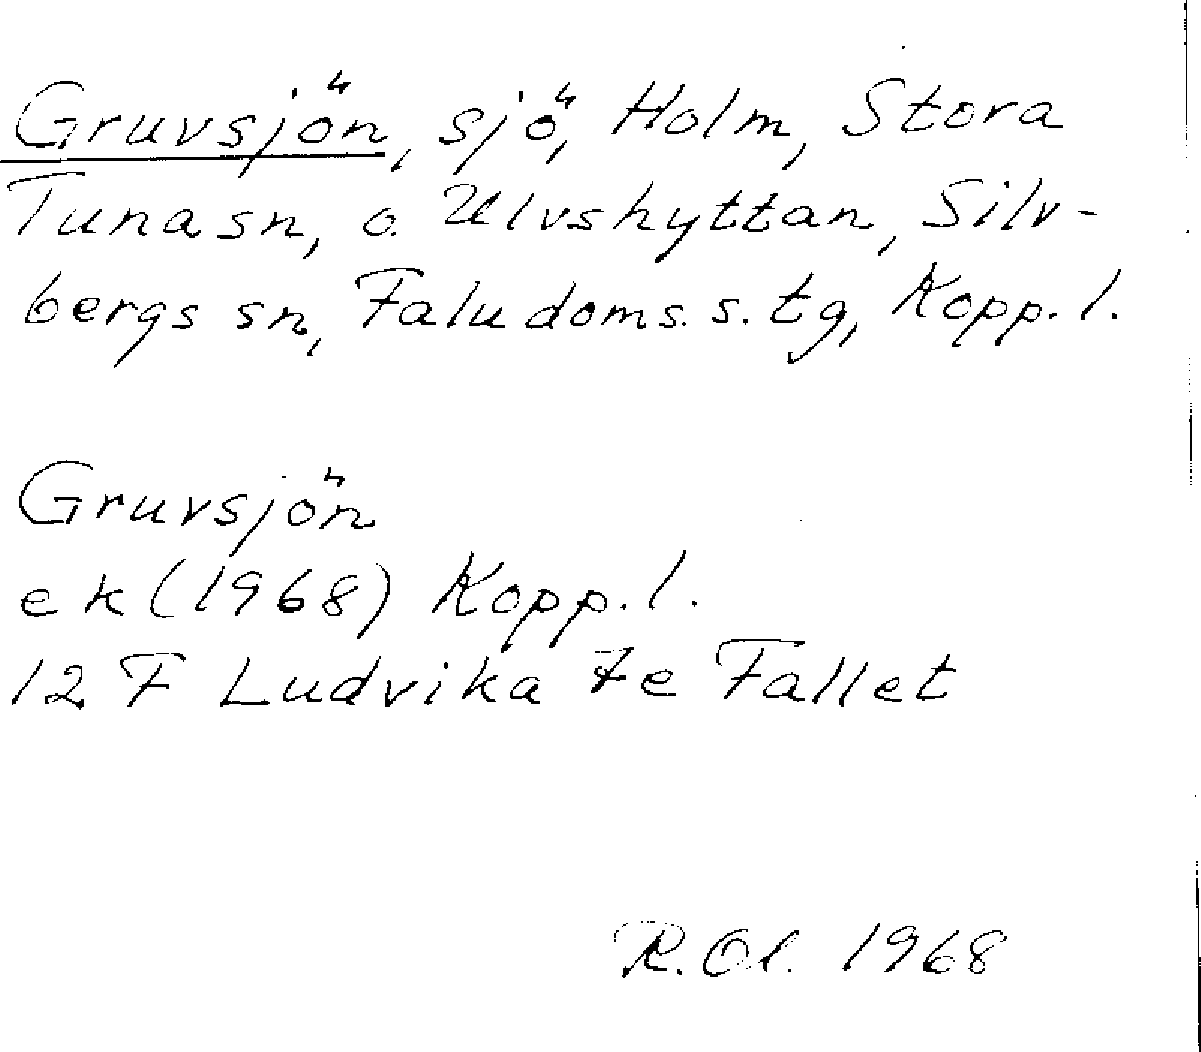 Gruvsjön, sjö, Holm, Stora
Tuna sn, o. Ulvshyttan, Silv-
bergs sn, Falu doms. s. tg, Kopp. l.
Gruvsjön
ek (1968) Kopp. l.
12 F Ludvika 7e Fallet
R. Ol. 1968